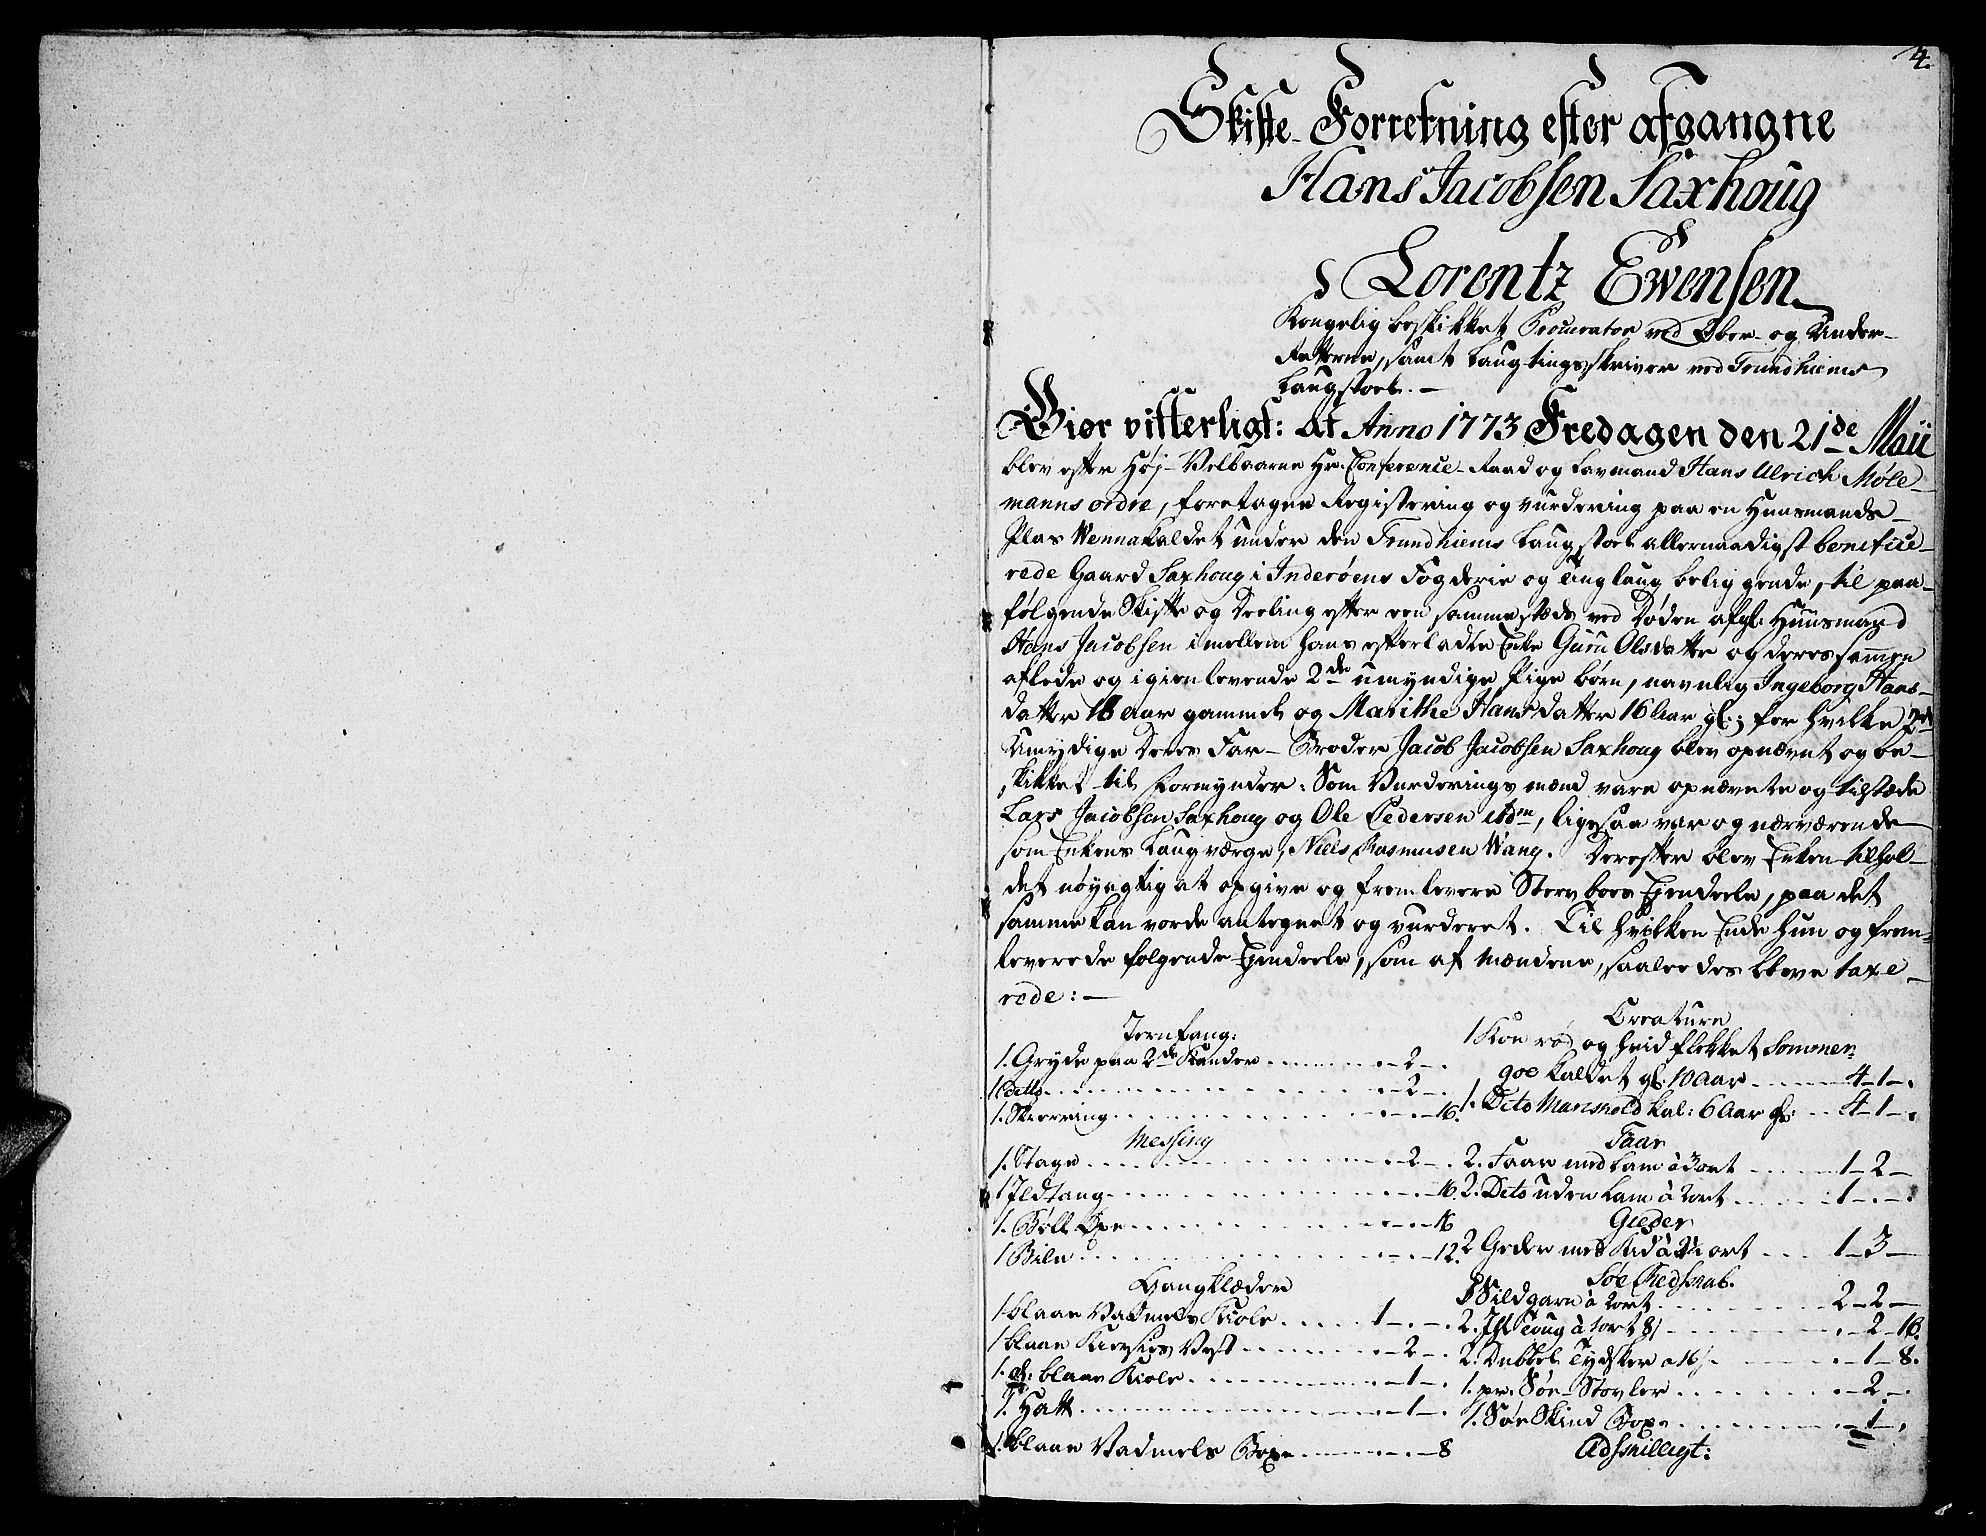 4.
Skifte-Forretning efter afgangne
Hans Jacobsen Saxhoug
Lorentz Ewensen
Kongelig beskikket Procurator ved Ober- og Under-
Retterne, samt Laugtingsskriver ved Trundhiems
Laugstoel. –
Giør vitterligt: At Anno 1773 Fredagen den 21de Maii
blev efter Høj-Velbaarne Hr. Conference-Raad og Lavmand Hans Ulrich Møle-
manns ordre, foretagen Registering og vurdering paa en Huusmands-
Plas Wenna kaldet under den Trundhiems Laugstoel allernaadigst benefice-
rede Gaard Saxhoug i Inderøens Fogderie og Tinglaug beliggende, til paa-
følgende Skifte og Deeling efter een sammestæds ved Døden afg: Huusmand
Hans Jacobsen imellem hans efterladte Enke Guru Olsdatter og deres sammen
aflede og igienlevende 2de umyndige Pige børn, navnlig Ingeborg Hans-
datter 18 Aar gammel og Marithe Hansdatter 16 Aar gl:; for hvilke 2de
Umydige Deres Far-Broder Jacob Jacobsen Saxhoug blev opnævnt og be-
skikket til Formynder: Som Vurderings mænd vare opnævnte og tilstæde
Lars Jacobsen Saxhoug og Ole Pedersen ibdm, ligesaa var og nærværende
som Enkens Laugværge, Niels Rasmusen Wang. Derefter blev Enken tilhol-
det nøyagtig at opgive og fremlevere Stervboes Ejendeele, paa det
samme kan vorde antegnet og vurderet. Til hvilken Ende hun og frem-
leverede følgende Ejendeele, som af Mændene, saaledes bleve taxe-
rede: –
Jernfang:
1. Gryde paa 2de Kander . . . . - 2 - .
1 ditto . . . . - 2 - .
1. Skierring . . . . - . - 16.
Messing
1. Stage . . . . - 2 - .
1 Ildtang . . . . - . - 16.
1. Bøll Øxe . . . . - . - 16
1 Bile . . . . - . - 12.
Gangklæder
1 blaae Vadmels Kiole . . . . 1 - . - .
1 blaae Kirsies Vest . . . . - 2 - .
1. dt: blaae Kiole . . . . - 1 - .
1. Hatt . . . . - 1 - .
1. blaae Vadmels Boxe . . . . - . - 8
Creature
1 Koe rød og hvid flekket Sommer-
goe kaldet gl: 10 Aar . . . . 4 - 1 - .
1. Dito Mariskold kal: 6 Aar gl: . . 4 - 1 - .
Faar
2. Faar med Lam à 3 ort . . . . 1 - 2 -
2. Dito uden Lam à 2 ort . . . . 1 - . - .
Gieder
2 Geder med Kid à 2½ ort . . . . 1 - 3 -
Søe Redskab.
Sildgarn à 2 ort . . . . 2 - 2 -
2. Ihl Toug à 1 ort 8/ . . . . - 2 - 16.
2. Dubbel Tydsker a 16/ . . . . - 1 - 8.
1. pr: Søe-Støvler . . . . - 2 - .
1. Søe Skind Boxe . . . . - 1 - .
Adskilligt: